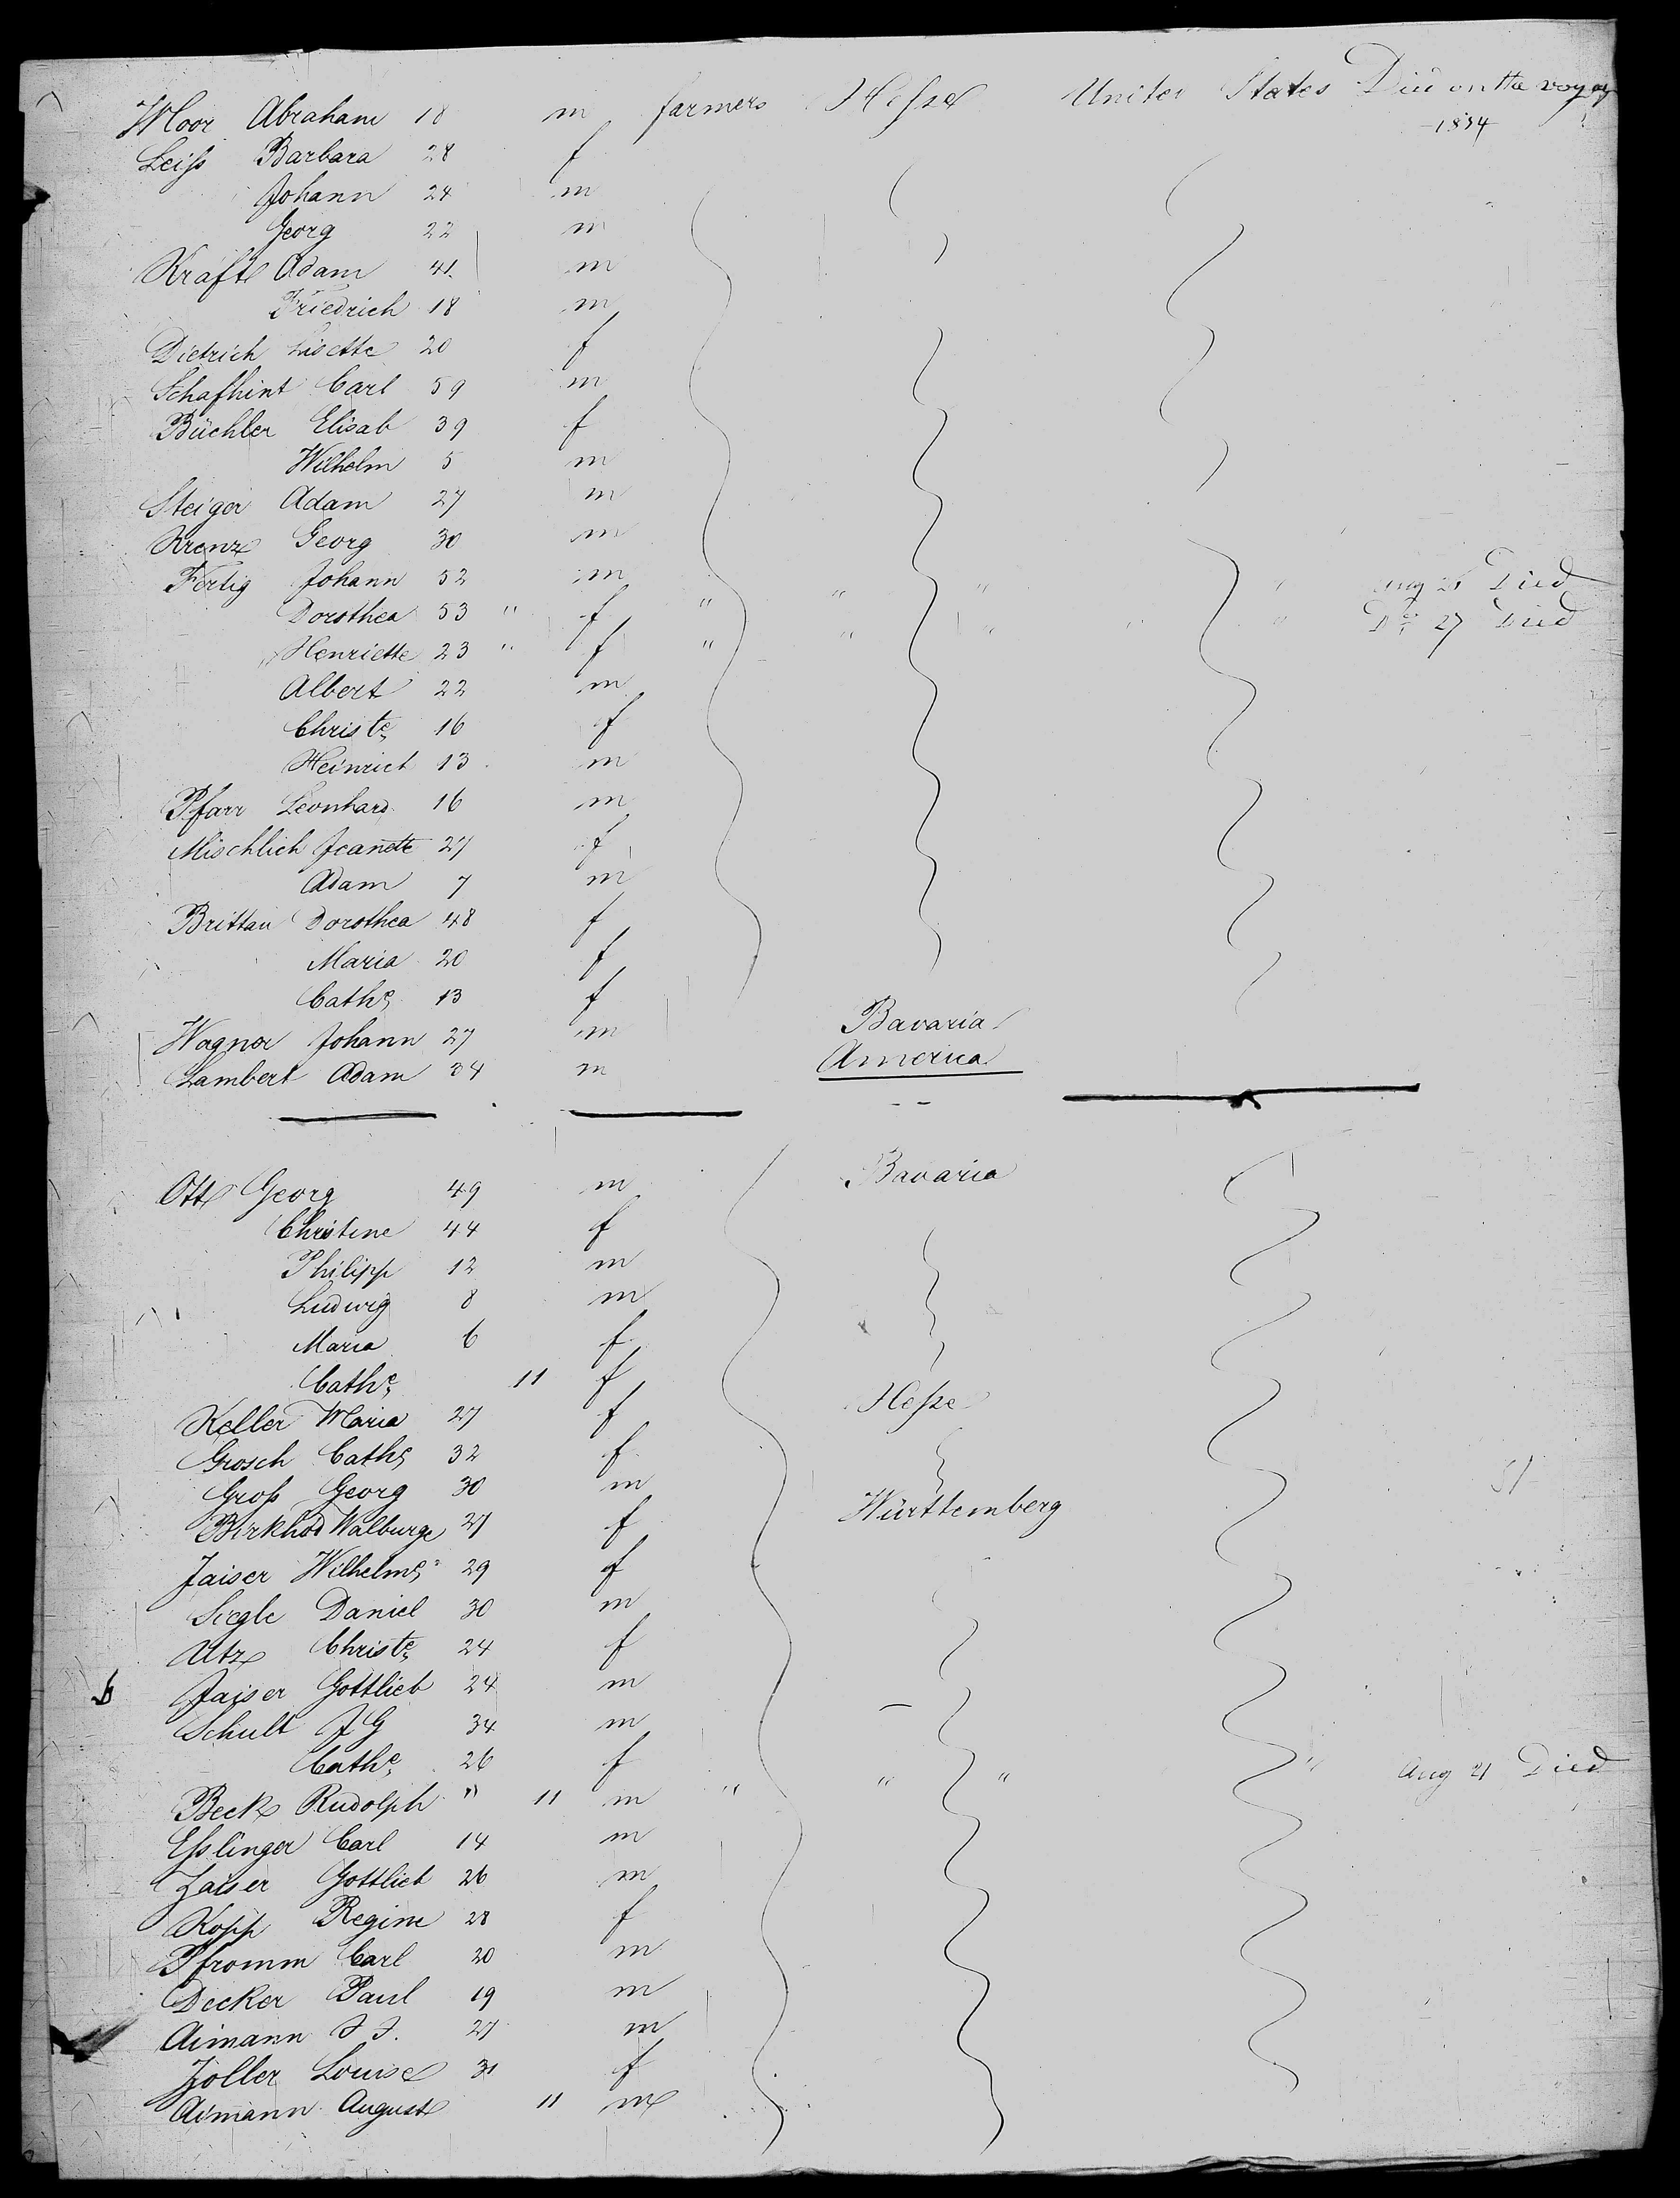 Moor Abraham 18 m farmers Hesse United States Died on the voyag
1854
Leiss Barbara 28 f
Johann 24 m
Georg 22 m
Kraft Adam 41 m
Friedrich 18 m
Dietrich Lisette 20 f
Schafhint Carl 59 m
Büchler Elisab 39 f
Wilhelm 5 m
Steiger Adam 27 m
Krenz Georg 30 m
Fertig Johann 52 m
Dorothea 53 " f " " " " Aug 21 Died
Henriette 23 " f " " " " Do 27 Died
Albert 22 m
Christe 16 f
Heinrich 13 m
Pfarr Leonhard 16 m
Mischlich Jeanette 27 f
Adam 7 m
Brittau Dorothea 48 f
Maria 20 f
Cathe 13 f
Wagner Johann 27 m Bavaria
Lambert Adam 34 m America
Ott Georg 49 m Bavaria
Christine 44 f
Philipp 12 m
Ludwig 8 m
Maria 6 f
Cathe 11 f
Keller Maria 27 f Hesse
Grosch Cathe 32 f
Gross Georg 30 m
Birkhod Walburge 27 f Württemberg
Jaiser Wilhelme 29 f
Siegle Daniel 30 m
Utz Christe 24 f
Jaiser Gottlieb 24 m
Schult J G 34 m
Cathe 26 f
Beck Rudolph " 11 m " " " " Aug 21 Died
Esslinger Carl 14 m
Zaiser Gottlieb 26 m
Kopp Regine 28 f
Pfromm Carl 20 m
Decker Paul 19 m
Aimann J J. 27 m
Zoller Louise 31 f
Aimann August 11 m